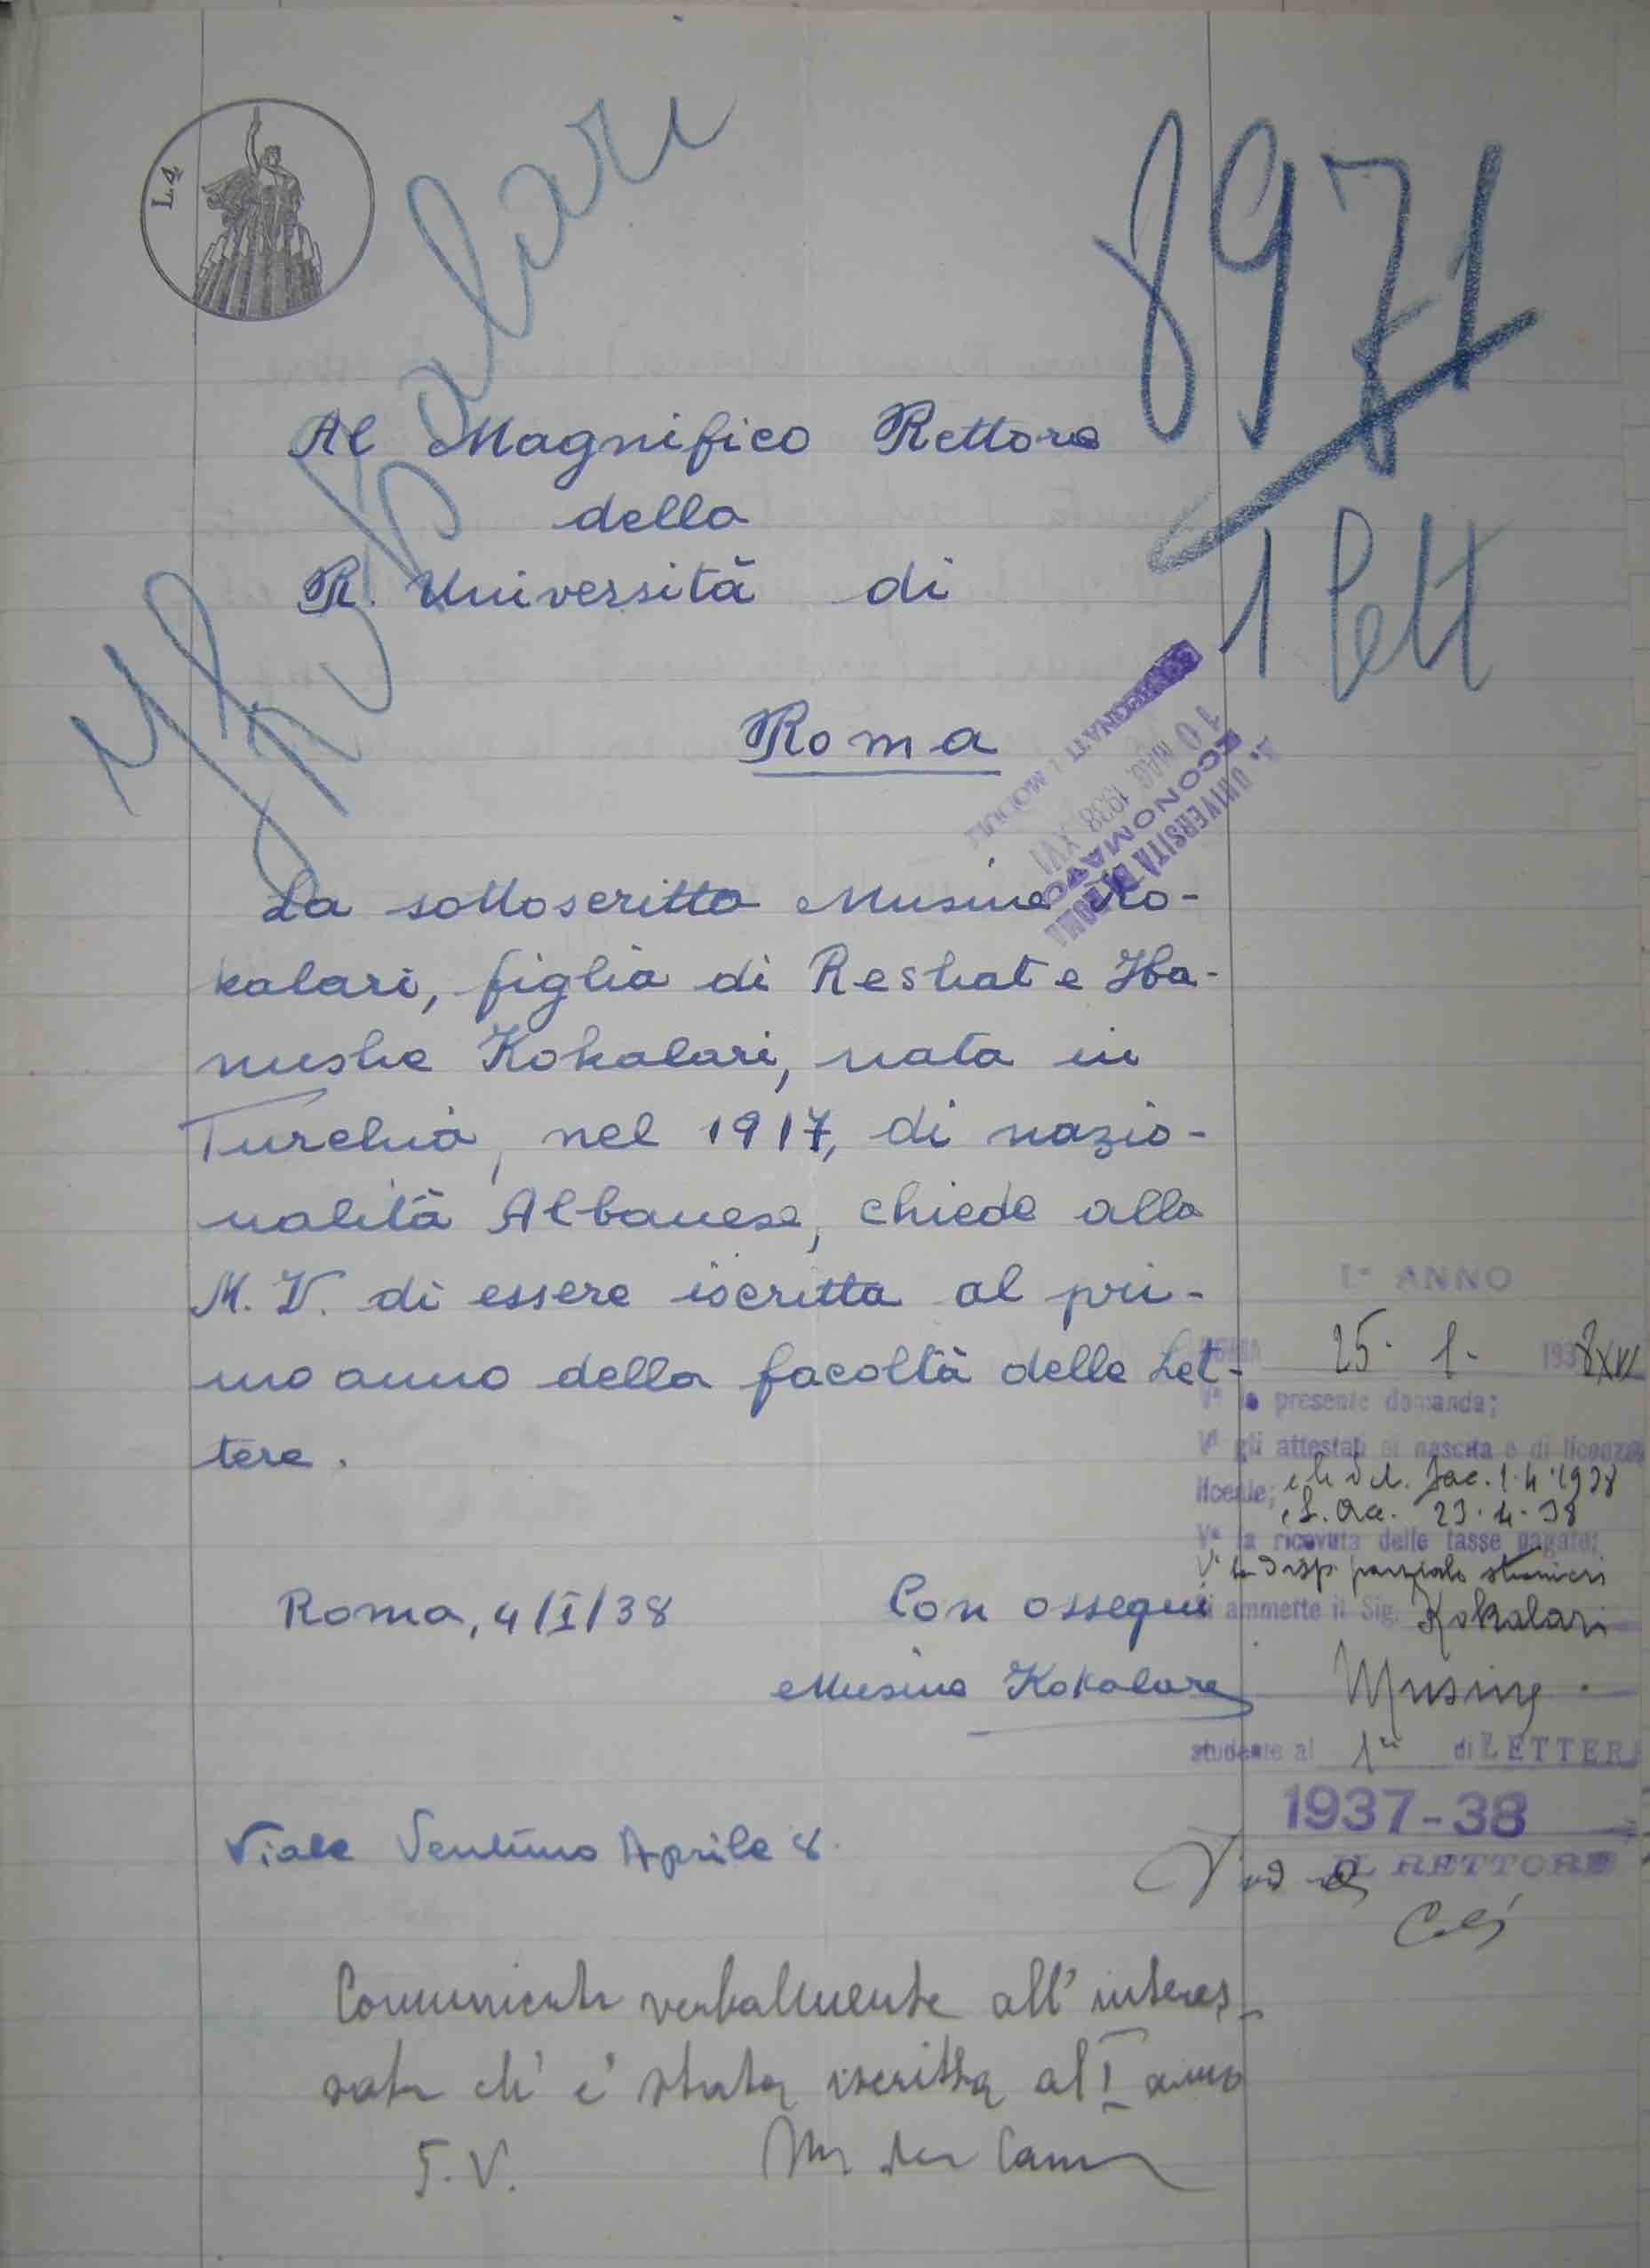 L.4
Kokalari
8971
1 lett
Al Magnifico Rettore
della
R. Università di
Roma
CONSEGNATI I MODULI
10 MAG. 1938 XVI
ECONOMATO
R. UNIVERSITÀ DI ROMA
La sottoscritta Musine Ko-
kalari, figlia di Reshat e Ha-
nushe Kokalari, nata in
Turchia, nel 1917, di nazio-
nalità Albanese, chiede alla
M. V. di essere iscritta al pri-
mo anno della facoltà delle Let-
tere.
Roma, 4/I/38 Con ossequi
Musine Kokalari
Viale Ventuno Aprile 8
I° ANNO
ROMA 25. 1. 1938 XVI
Vª la presente domanda;
Vi gli attestati di nascita e di licenza
liceale; Fac. 1.4.1938
23.4.38
Vª la ricevuta delle tasse pagate;
stranieri
Si ammette il Sig. Kokalari
Musine
studente al 1° di LETTERE
1937-38
IL RETTORE
Comunicato verbalmente all'interes-
sata ch'è stata iscritta al I anno